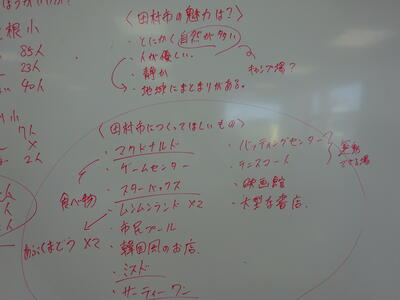 と根小
85人
23人
40人
小
7人
×
2人
人
人
〈田村市の魅力は?〉
・とにかく自然が多い
・人が優しい。
キャンプ場?
・静か
・地域にまとまりがある。
〈田村市につくってほしいもの〉
・マクドナルド
・ゲームセンター
・スターバックス
・ムシムシランド ×2
・市民プール
・韓国風のお店
・ミスド
・サーティーワン
食べ物
あぶくまどう ×2
・バッティングセンター
・テニスコート
・映画館
・大型な書店
運動できる場